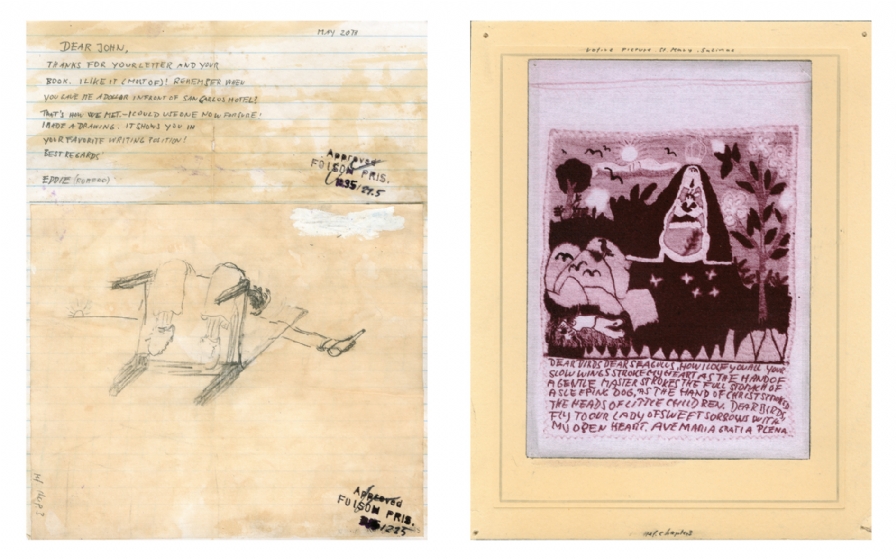 MAY 2071
DEAR JOHN,
THANKS FOR YOUR LETTER AND YOUR
BOOK. I LIKE IT (MOST OF)! REMEMBER WHEN
YOU GAVE ME A DOLLAR IN FRONT OF SAN CARLOS HOTEL?
THAT'S HOW WE MET. – I COULD USE ONE NOW FOR SURE!
I MADE A DRAWING. IT SHOWS YOU IN
YOUR FAVORITE WRITING POSITION!
BEST REGARDS
EDDIE
Approved
FOLSOM PRIS.
Approved
FOLSOM PRIS.
DEAR BIRDS DEAR SEAGULLS, HOW I LOVE YOU ALL YOUR
SLOW WINGS STROKE MY HEART AS THE HAND OF
A GENTLE MASTER STROKES THE FULL STOMACH OF
A SLEEPING DOG, AS THE HAND OF CHRIST STROKED
THE HEADS OF LITTLE CHILDREN. DEAR BIRDS
FLY TO OUR LADY OF SWEET SORROWS WITH
MY OPEN HEART. AVE MARIA GRATIA PLENA